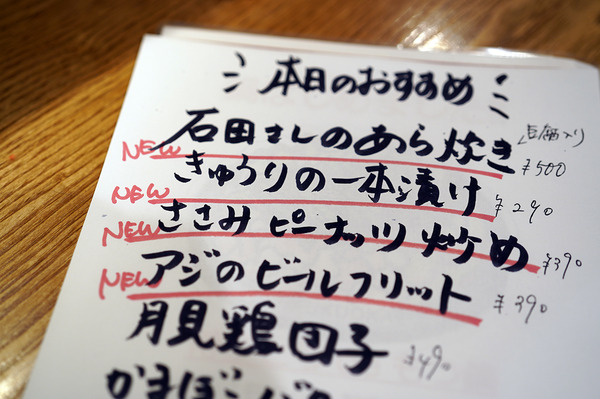 本日のおすすめ
NEW 石田さしのあら炊き 豆腐入り ¥500
NEW きゅうりの一本漬け ¥290
NEW ささみピーナッツ炒め ¥390
NEW アジのビールフリット ¥390
月見鶏団子 ¥490
かまぼこバ